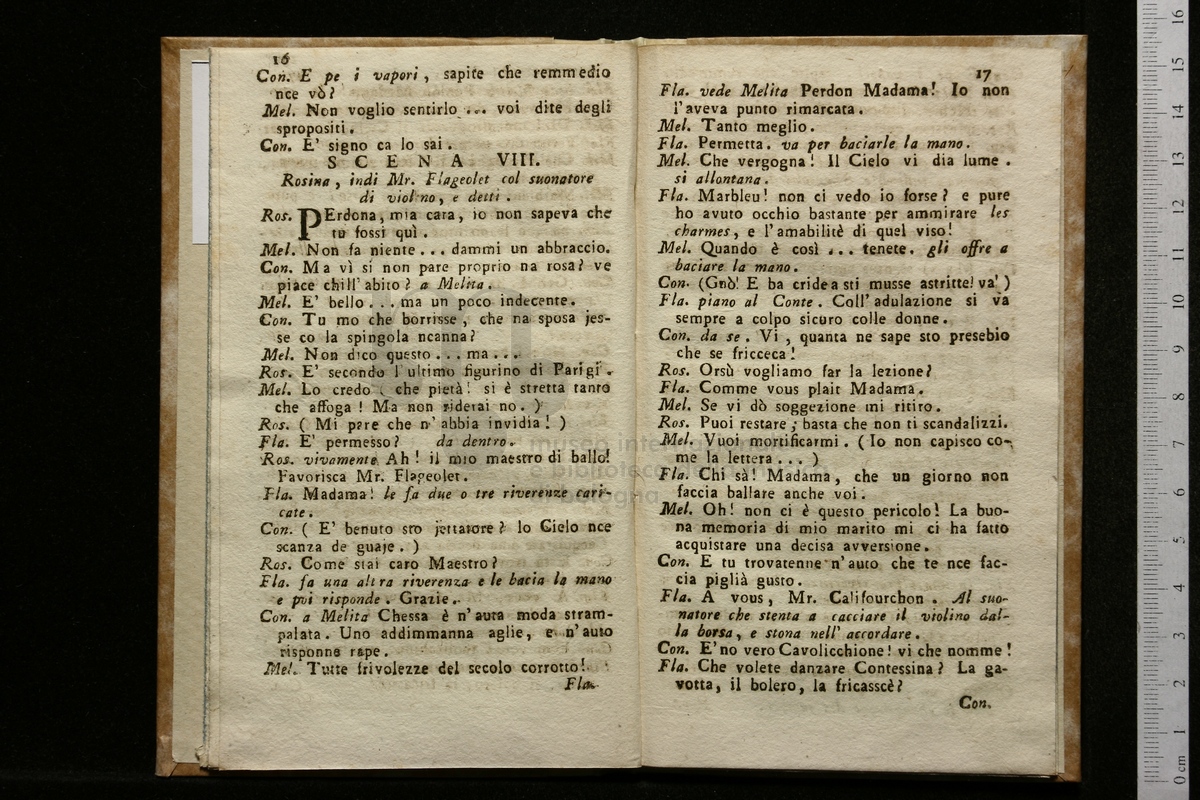 16
Con. E pe i vapori, sapite che remmedio
nce vò?
Mel. Non voglio sentirlo ... voi dite degli
spropositi.
Con. E' signo ca lo sai.
SCENA VIII.
Rosina, indi Mr. Flageolet col suonatore
di violino, e detti.
Ros. PErdona, mia cara, io non sapeva che
tu fossi quì.
Mel. Non fa niente... dammi un abbraccio.
Con. Ma vì si non pare proprio na rosa? ve
piace chill' abito? a Melita.
Mel. E' bello... ma un poco indecente.
Con. Tu mo che borrisse, che na sposa jes-
se co la spingola ncanna?
Mel. Non dico questo... ma...
Ros. E' secondo l'ultimo figurino di Parigi.
Mel. Lo credo ( che pietà! si è stretta tanto
che affoga! Ma non riderai no. )
Ros. ( Mi pare che n' abbia invidia! )
Fla. E' permesso? da dentro.
Ros. vivamente Ah! il mio maestro di ballo!
Favorisca Mr. Flageolet.
Fla. Madama! le fa due o tre riverenze cari-
cate.
Con. ( E' benuto sto jettatore? lo Cielo nce
scanza de guaje. )
Ros. Come stai caro Maestro?
Fla. fa una altra riverenza e le bacia la mano
e poi risponde. Grazie.
Con. a Melita Chessa è n'auta moda stram-
palata. Uno addimmanna aglie, e n'auto
risponne rape.
Mel. Tutte frivolezze del secolo corrotto!
Fla.
17
Fla. vede Melita Perdon Madama! Io non
l'aveva punto rimarcata.
Mel. Tanto meglio.
Fla. Permetta. va per baciarle la mano.
Mel. Che vergogna! Il Cielo vi dia lume.
si allontana.
Fla. Marbleu! non ci vedo io forse? e pure
ho avuto occhio bastante per ammirare les
charmes, e l'amabilitè di quel viso!
Mel. Quando è così ... tenete. gli offre a
baciare la mano.
Con. (Gnò! E ba cridea sti musse astritte! va')
Fla. piano al Conte. Coll' adulazione si va
sempre a colpo sicuro colle donne.
Con. da se. Vi, quanta ne sape sto presebio
che se fricceca!
Ros. Orsù vogliamo far la lezione?
Fla. Comme vous plait Madama.
Mel. Se vi dò soggezione mi ritiro.
Ros. Puoi restare; basta che non ti scandalizzi.
Mel. Vuoi mortificarmi. ( Io non capisco co-
me la lettera... )
Fla. Chi sà! Madama, che un giorno non
faccia ballare anche voi.
Mel. Oh! non ci è questo pericolo! La buo-
na memoria di mio marito mi ci ha fatto
acquistare una decisa avversione.
Con. E tu trovatenne n'auto che te nce fac-
cia piglià gusto.
Fla. A vous, Mr. Califourchon. Al suo-
natore che stenta a cacciare il violino dal-
la borsa, e stona nell' accordare.
Con. E'no vero Cavolicchione! vi che nomme!
Fla. Che volete danzare Contessina? La ga-
votta, il bolero, la fricasscè?
Con.
museo inte
e biblioteca de
bologna
0 cm 1 2 3 4 5 6 7 8 9 10 11 12 13 14 15 16